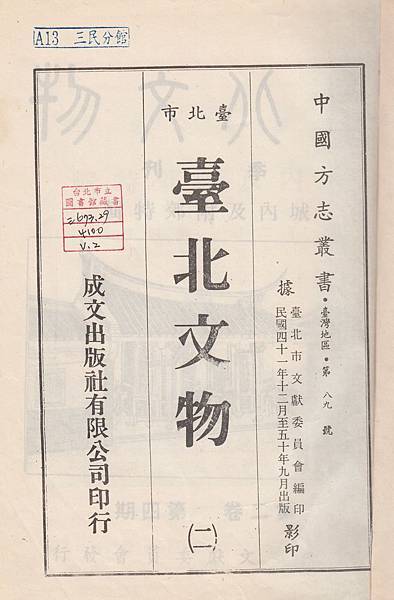 A13 三民分館
中國方志叢書・臺灣地區・第 八九 號
據
臺北市文獻委員會編印
民國四十一年十二月至五十年九月出版
影印
臺北市
臺北文物
(二)
台北市立
圖書館藏書
673.29
4100
V.2
成文出版社有限公司印行